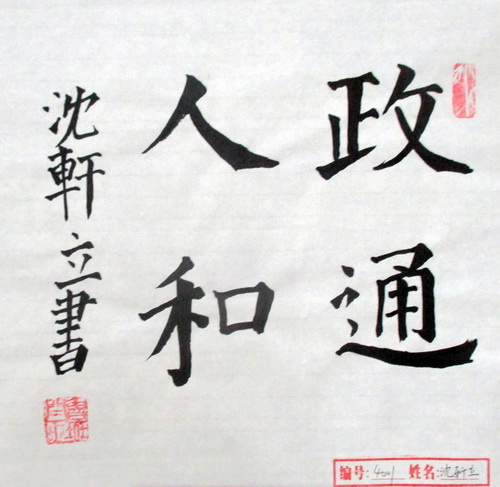 政通
人和
沈軒立書
编号: 4201 姓名: 沈軒立